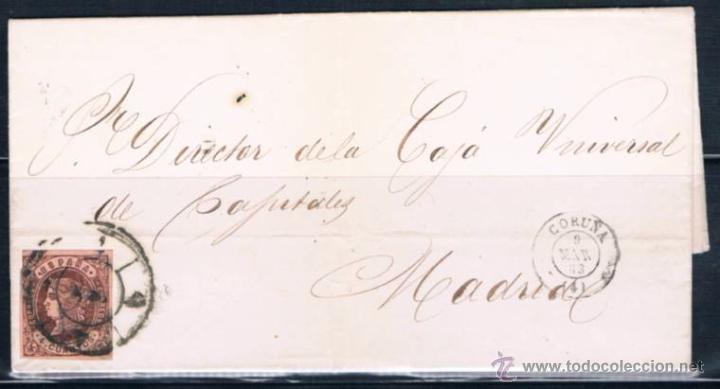 Sr. Director de la Caja Universal
de Capitales
Madrid
CORUÑA
9
MAR
63
(4)
ESPAÑA
4 CUARTOS
© www.todocoleccion.net